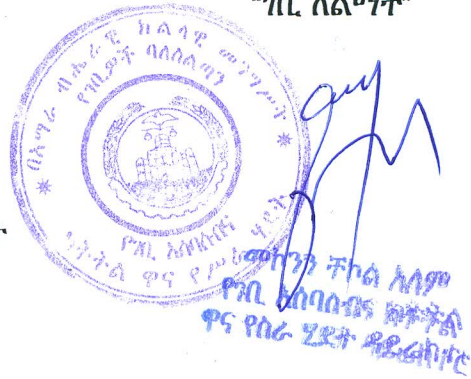 "ገቢ ለልማት"
በአማራ ብሔራዊ ክልላዊ መንግሥት
የገቢዎች ባለስልጣን
የገቢ አሰባሰብና
ክትትል ዋና የሥራ ሂደት
መኮንን ቸኮል አለም
የገቢ አሰባሰብና ክትትል
ዋና የስራ ሂደት ዳይሬክተር